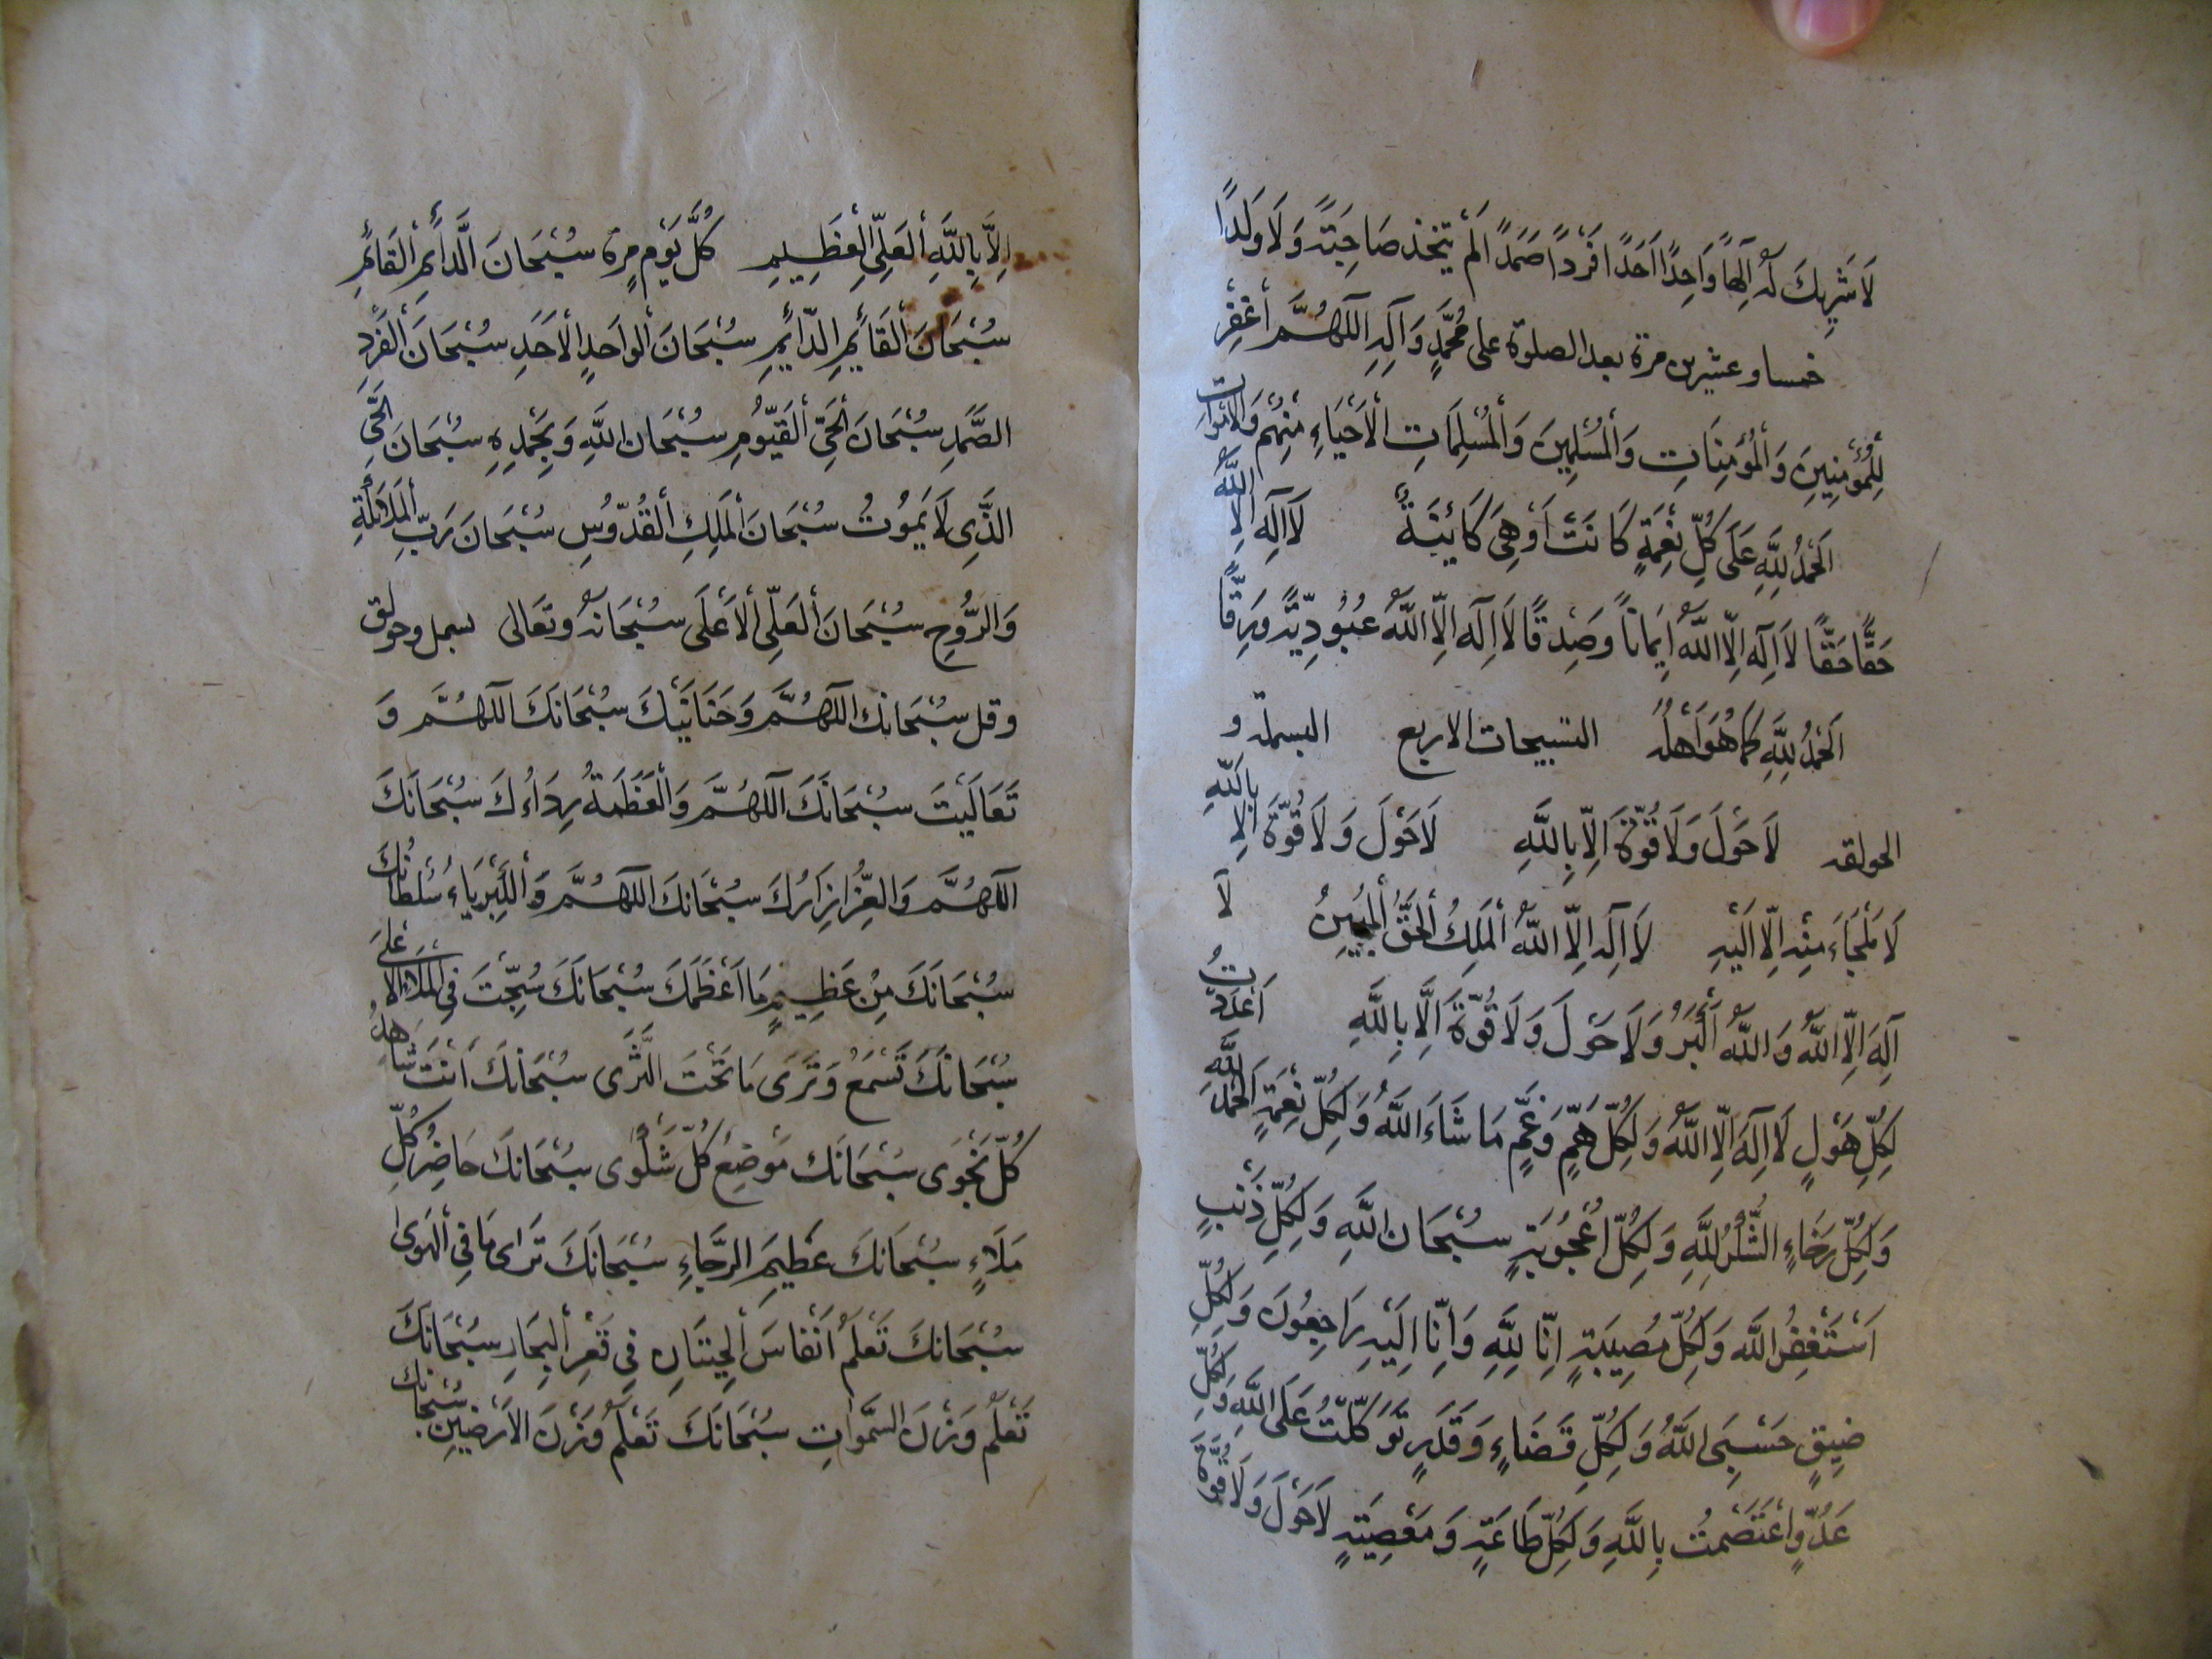 لَا شَرِيكَ لَهُ اِلَهًا وَاحِدًا اَحَدًا فَرْدًا صَمَدًا لَمْ يتخذ صَاحِبَةً وَلَا وَلَدًا
خمسا وعشرين مرة بعد الصلوة على مُحَمَّدٍ وَآلِهِ اَللَّهُمَّ أغْفِرْ
لِلْمُؤْمِنِينَ وَالْمُؤْمِنَاتِ وَالْمُسْلِمِينَ وَالْمُسْلِمَاتِ الْأَحْيَاءِ مِنْهُمْ وَالْأَمْوَاتِ
اَلْحَمْدُ لِلَّهِ عَلَى كُلِّ نِعْمَةٍ كَانَتْ اَوْ هِيَ كَائِنَةٌ لَا اِلَهَ اِلَّا اللَّهُ
حَقًّا حَقًّا لَا اِلَهَ اِلَّا اللَّهُ اِيمَانًا وَصِدْقًا لَا اِلَهَ اِلَّا اللَّهُ عُبُودِيَّةً وَرِقًّا
اَلْحَمْدُ لِلَّهِ كَمَا هُوَ اَهْلُهُ التسبيحات الاربع البسملة و
الحولقه لَا حَوْلَ وَلَا قُوَّةَ اِلَّا بِاللَّهِ لَا حَوْلَ وَلَا قُوَّةَ اِلَّا بِاللَّهِ
لَا مَلْجَاءَ مِنْهِ اِلَّا اِلَيْهِ لَا اِلَهَ اِلَّا اللَّهُ الْمَلِكُ الْحَقُّ الْمُبِينُ لَا
اِلَهَ اِلَّا اللَّهُ وَاللَّهُ أَكْبَرُ وَلَا حَوْلَ وَلَا قُوَّةَ اِلَّا بِاللَّهِ اَعْدَدْتُ
لِكُلِّ هَوْلٍ لَا اِلَهَ اِلَّا اللَّهُ وَلِكُلِّ هَمٍّ وَغَمٍّ مَا شَاءَ اللَّهُ وَلِكُلِّ نِعْمَةٍ اَلْحَمْدُ لِلَّهِ
وَلِكُلِّ رَخَاءٍ الشُّكْرُ لِلَّهِ وَلِكُلِّ اُعْجُوبَةٍ سُبْحَانَ اللَّهِ وَلِكُلِّ ذَنْبٍ
اَسْتَغْفِرُ اللَّه وَلِكُلِّ مُصِيبَةٍ اِنَّا لِلَّهِ وَاِنَّا اِلَيْهِ رَاجِعُونَ وَلِكُلِّ
ضِيقٍ حَسْبِيَ اللَّهُ وَلِكُلِّ قَضَاءٍ وَقَدَرٍ تَوَكَّلْتُ عَلَى اللَّهِ وَلِكُلِّ
عَدُوٍّ اعْتَصَمْتُ بِاللَّهِ وَلِكُلِّ طَاعَةٍ وَمَعْصِيَةٍ لَا حَوْلَ وَلَا قُوَّةَ
اِلَّا بِاللَّهِ الْعَلِيِّ الْعَظِيمِ كُلَّ يَوْمٍ مَرَّة سُبْحَانَ الدَّائِمِ الْقَائِمِ
سُبْحَانَ الْقَائِمِ الدَّائِمِ سُبْحَانَ الْوَاحِدِ الْأَحَدِ سُبْحَانَ الْفَرْدِ
الصَّمَدِ سُبْحَانَ الْحَيِّ الْقَيُّومِ سُبْحَانَ اللَّهِ وَبِحَمْدِهِ سُبْحَانَ الْحَيِّ
الَّذِي لَا يَمُوتُ سُبْحَانَ الْمَلِكِ الْقُدُّوسِ سُبْحَانَ رَبِّ الْمَلَائِكَةِ
وَالرُّوحِ سُبْحَانَ الْعَلِيِّ الْأَعْلَى سُبْحَانَهُ وَتَعَالَى بسمل وحولق
وقل سُبْحَانَكَ اللَّهُمَّ وَحَنَانَيْكَ سُبْحَانَكَ اللَّهُمَّ وَ
تَعَالَيْتَ سُبْحَانَكَ اللَّهُمَّ وَالْعَظَمَةُ رِدَاؤُكَ سُبْحَانَكَ
اللَّهُمَّ وَالْعِزُّ اِزَارُكَ سُبْحَانَكَ اللَّهُمَّ وَالْكِبْرِيَاءُ سُلْطَانُكَ
سُبْحَانَكَ مِنْ عَظِيمٍ مَا اَعْظَمَكَ سُبْحَانَكَ سُبِّحْتَ فِي الْمَلَاءِ الْأَعْلَى
سُبْحَانَكَ تَسْمَعُ وَتَرَى مَا تَحْتَ الثَّرَى سُبْحَانَكَ اَنْتَ شَاهِدُ
كُلِّ نَجْوَى سُبْحَانَكَ مَوْضِعُ كُلِّ شَكْوَى سُبْحَانَكَ حَاضِرُ كُلِّ
مَلَاءٍ سُبْحَانَكَ عَظِيمَ الرَّجَاءِ سُبْحَانَكَ تَرَى مَا فِي الْهَوَى
سُبْحَانَكَ تَعْلَمُ اَنْفَاسَ الْحِيتَانِ فِي قَعْرِ الْبِحَارِ سُبْحَانَكَ
تَعْلَمُ وَزْنَ السَّمَوَاتِ سُبْحَانَكَ تَعْلَمُ وَزْنَ الْأَرَضِينِ سُبْحَانَكَ